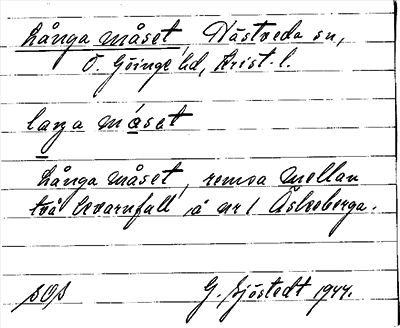 Långa måset, Hästveda sn,
Ö. Göinge hd, Krist. l.
laŋa måsət
Långa måset, remsa mellan
två kvarnfall å nr 1 Äskeberga.
G. Sjöstedt 1944.